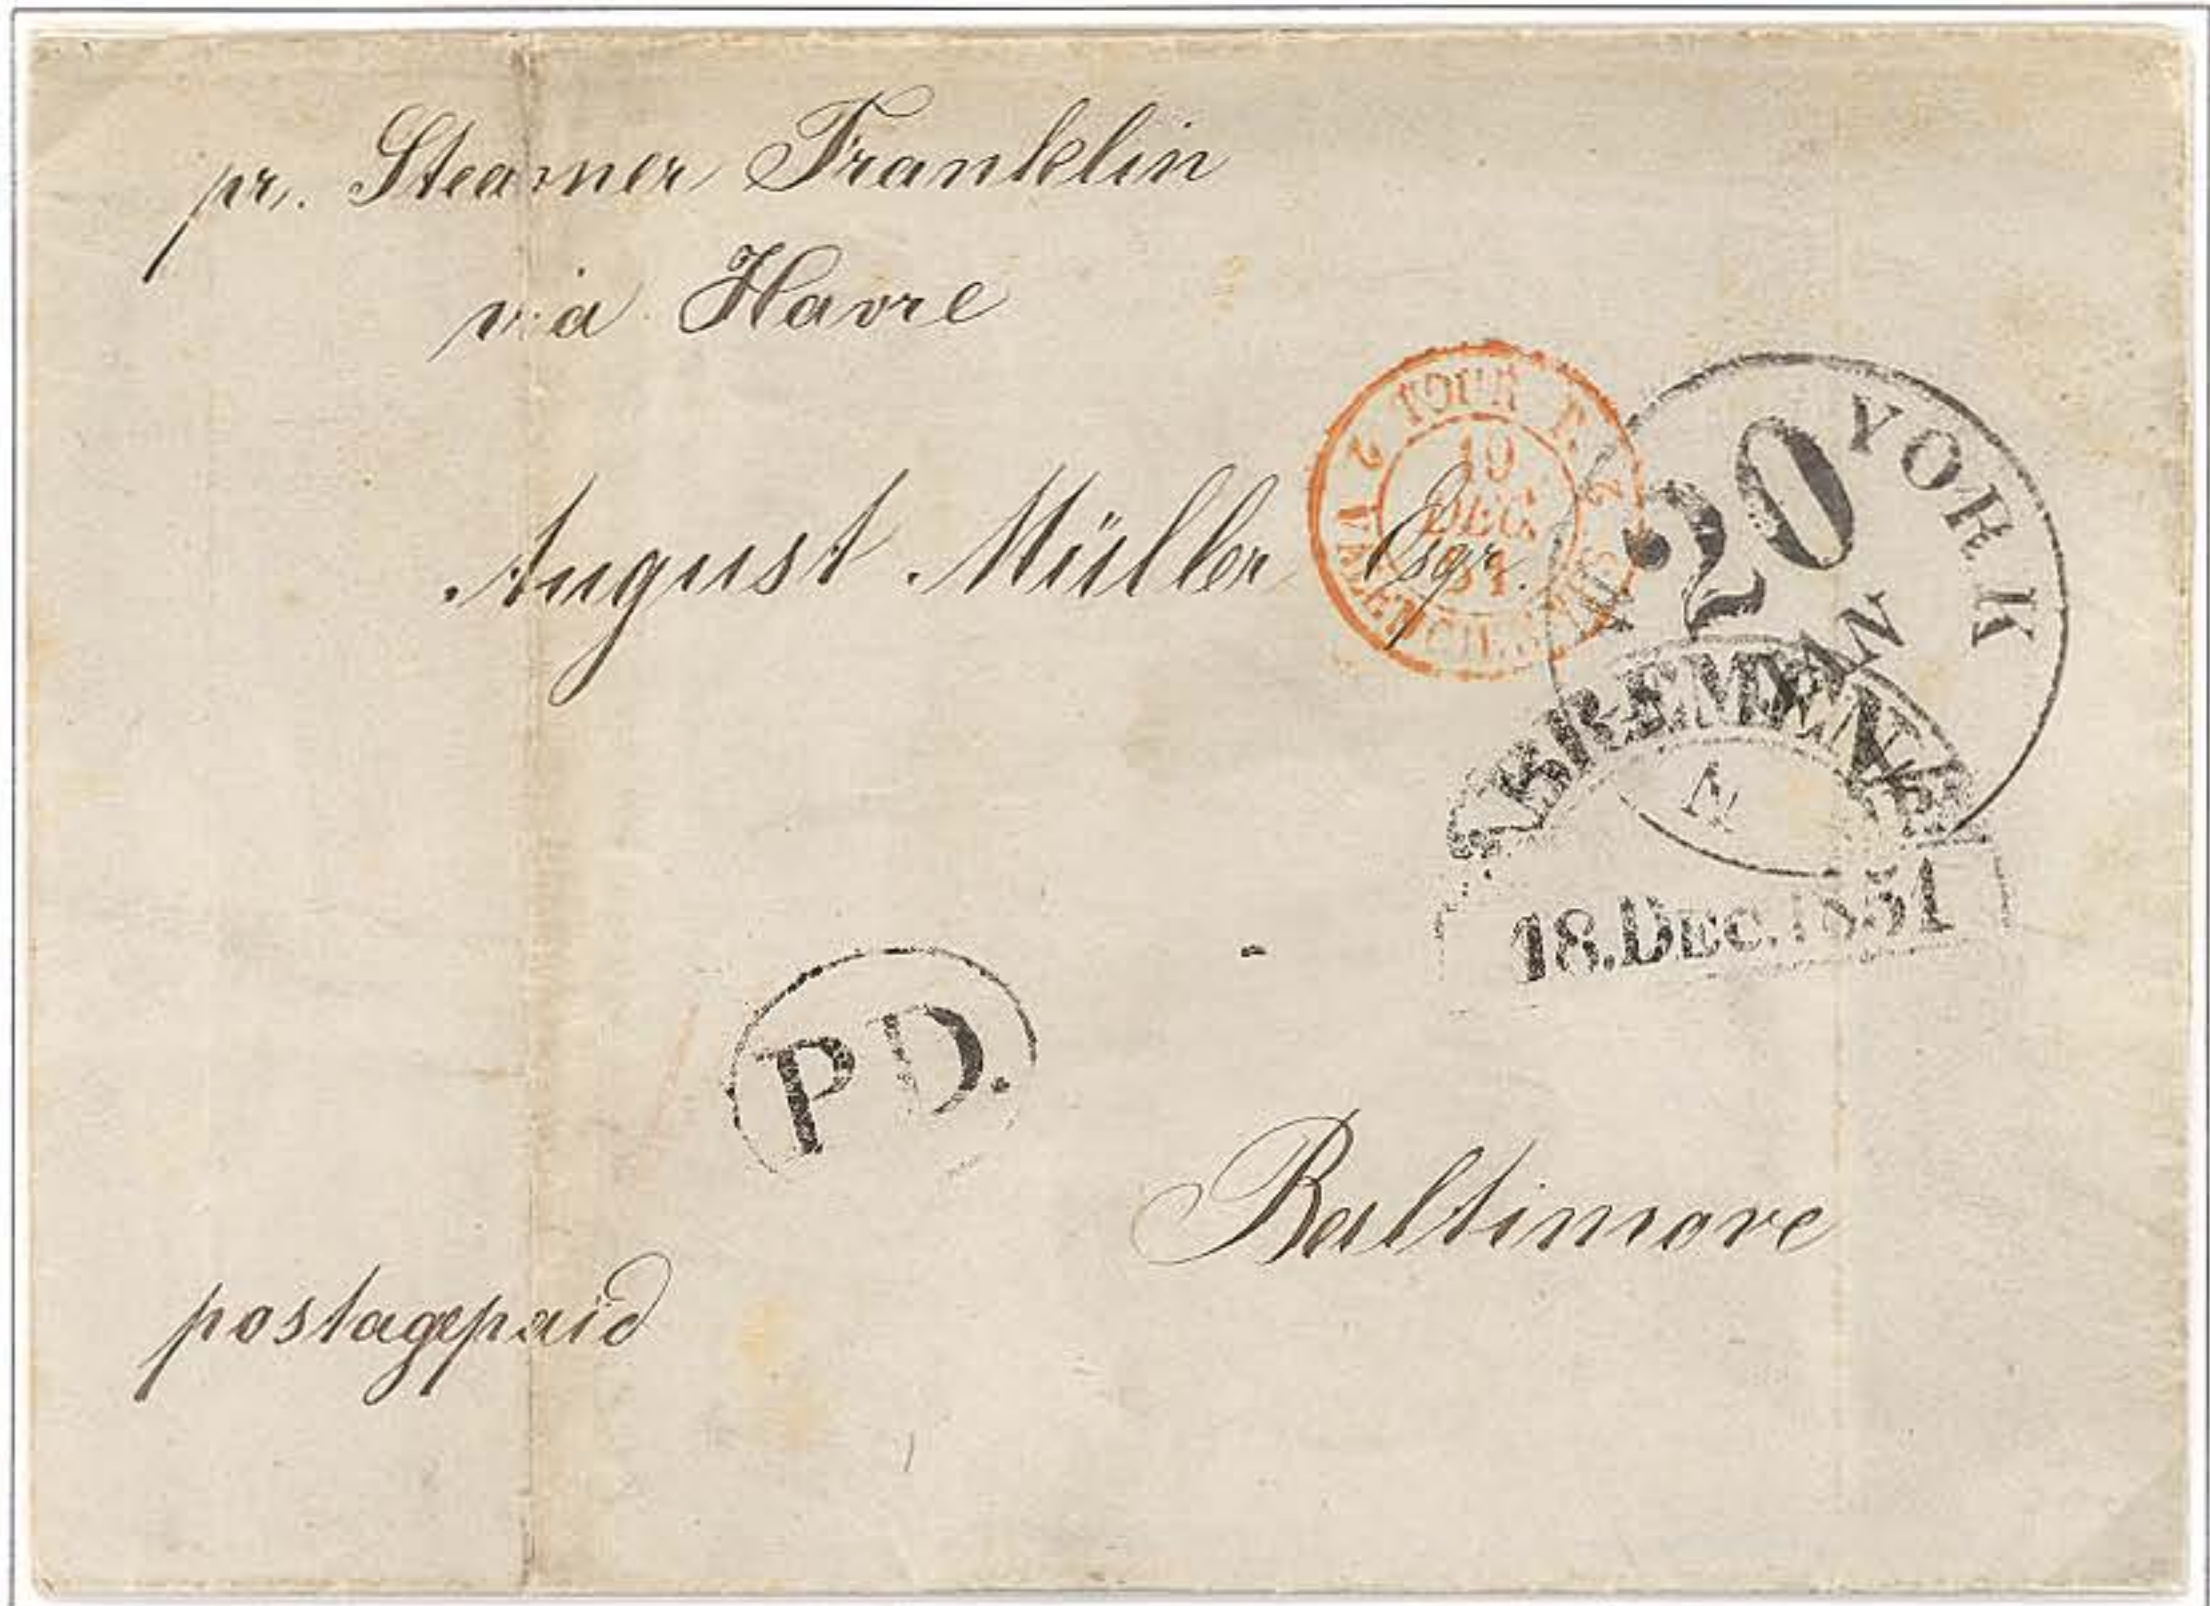 pr. Steamer Franklin
via Havre
August Müller Esqr.
19
DEC.
51
YORK
20
JAN
N
BREMEN
18.DEC.1851
PD.
Baltimore
postagepaid